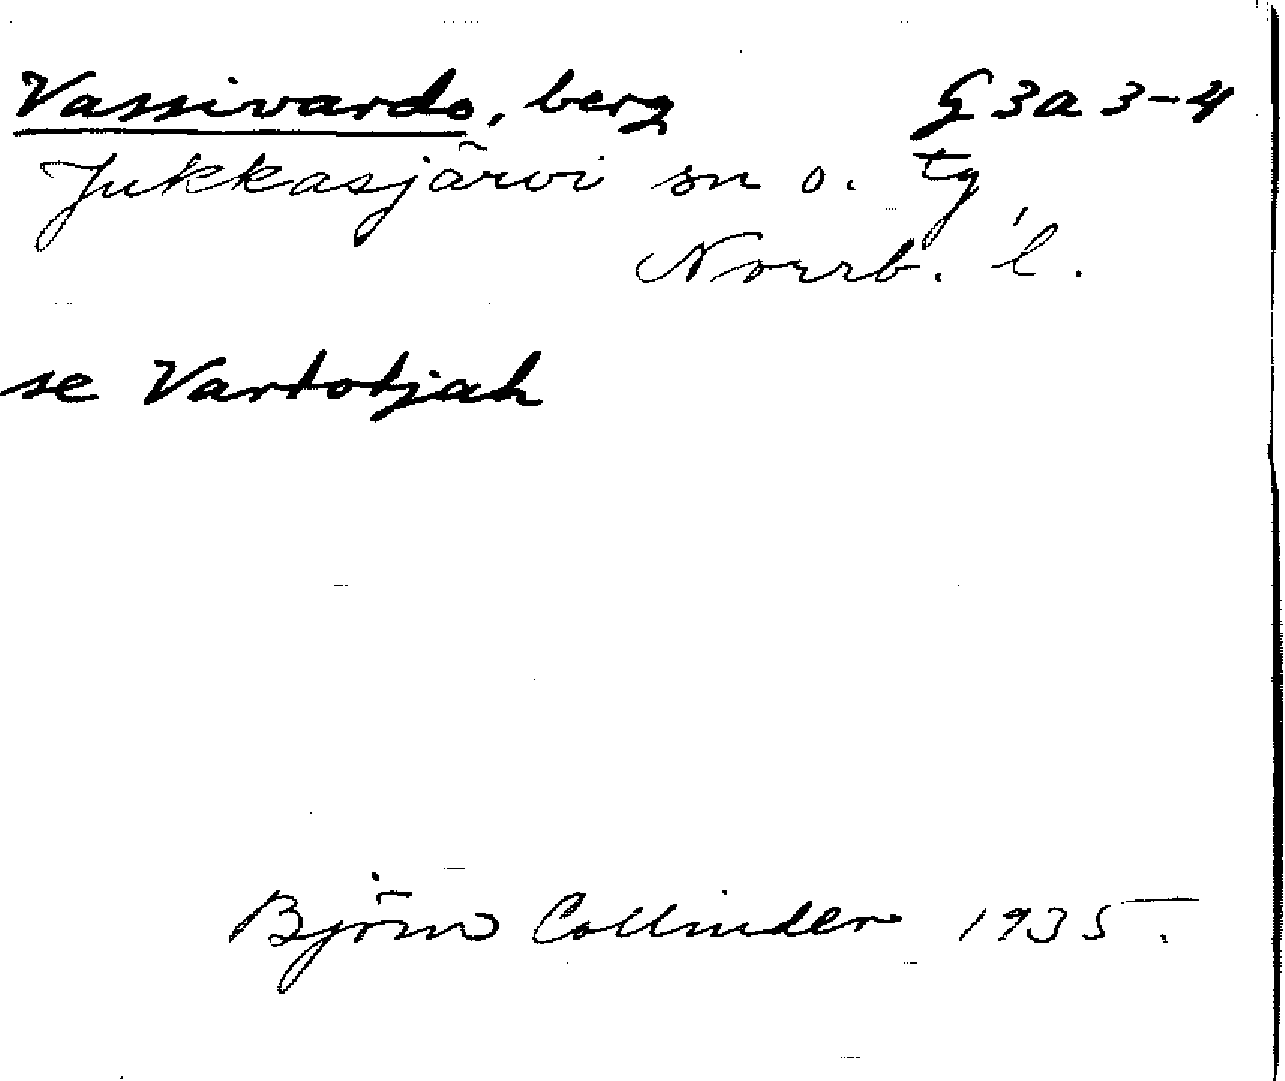 Vassivardo, berg G 3a 3-4
Jukkasjärvi sn o. tg
Norrb. l.
se Vartotjåh
Björn Collinder 1935.